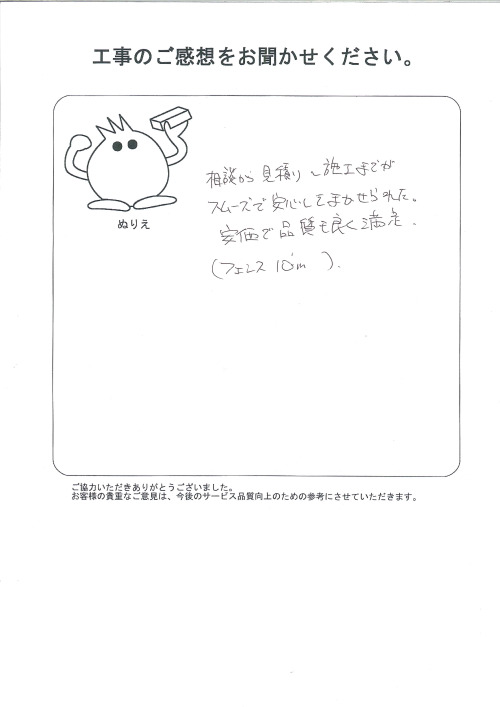 工事のご感想をお聞かせください。
ぬりえ
相談から見積り、施工までが
スムーズで安心してまかせられた。
安価で品質も良く満足.
(フェンス 10m ).
ご協力いただきありがとうございました。
お客様の貴重なご意見は、今後のサービス品質向上のための参考にさせていただきます。